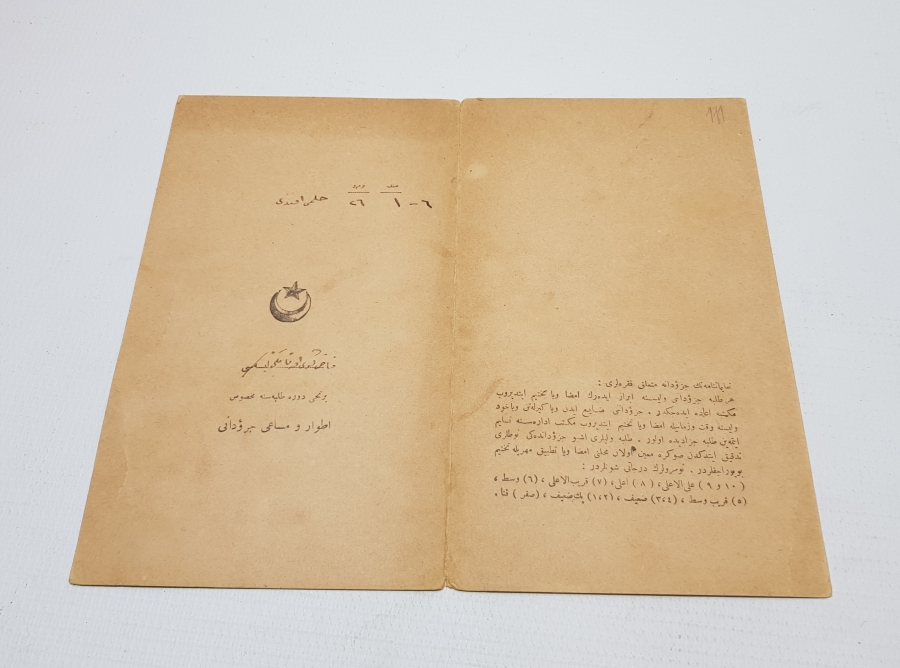 صنف نومرو
٦ - ١ ٢٦ حلمی افندی
برنجی دوره طلبه‌سنه مخصوص
اطوار و مساعی جزؤدانی
١١١
تعلیماتنامه‌نك جزؤدانه متعلق فقره‌لری :
هر طلبه جزؤدانی ولیسنه ابراز ایده‌رك امضا ویا تختیم ایتدیروب
مکتبه اعاده ایده‌جکدر . جزؤدانی ضایع ایدن ویا کیرله‌تن ویاخود
ولیسنه وقت وزمانیله امضا ویا تختیم ایتدیروب مکتب اداره‌سنه تسلیم
ایتمه‌ین طلبه جزادیده اولور . طلبه ولیلری اشو جزؤدانده‌کی نوطه‌لری
تدقیق ایتدکدن صوکره معین اولان محلنی امضا ویا تطبیق مهریله تختیم
بویوراجقلردر . نومرولرك درجاتی شونلردر :
( ١٠ و ٩ ) علی الاعلی ، ( ٨ ) اعلی ، (٧) قریب الاعلی ، (٦) وسط ،
(٥) قریب وسط ، (٣،٤) ضعیف ، (١،٢) پك ضعیف ، ( صفر ) فنا .